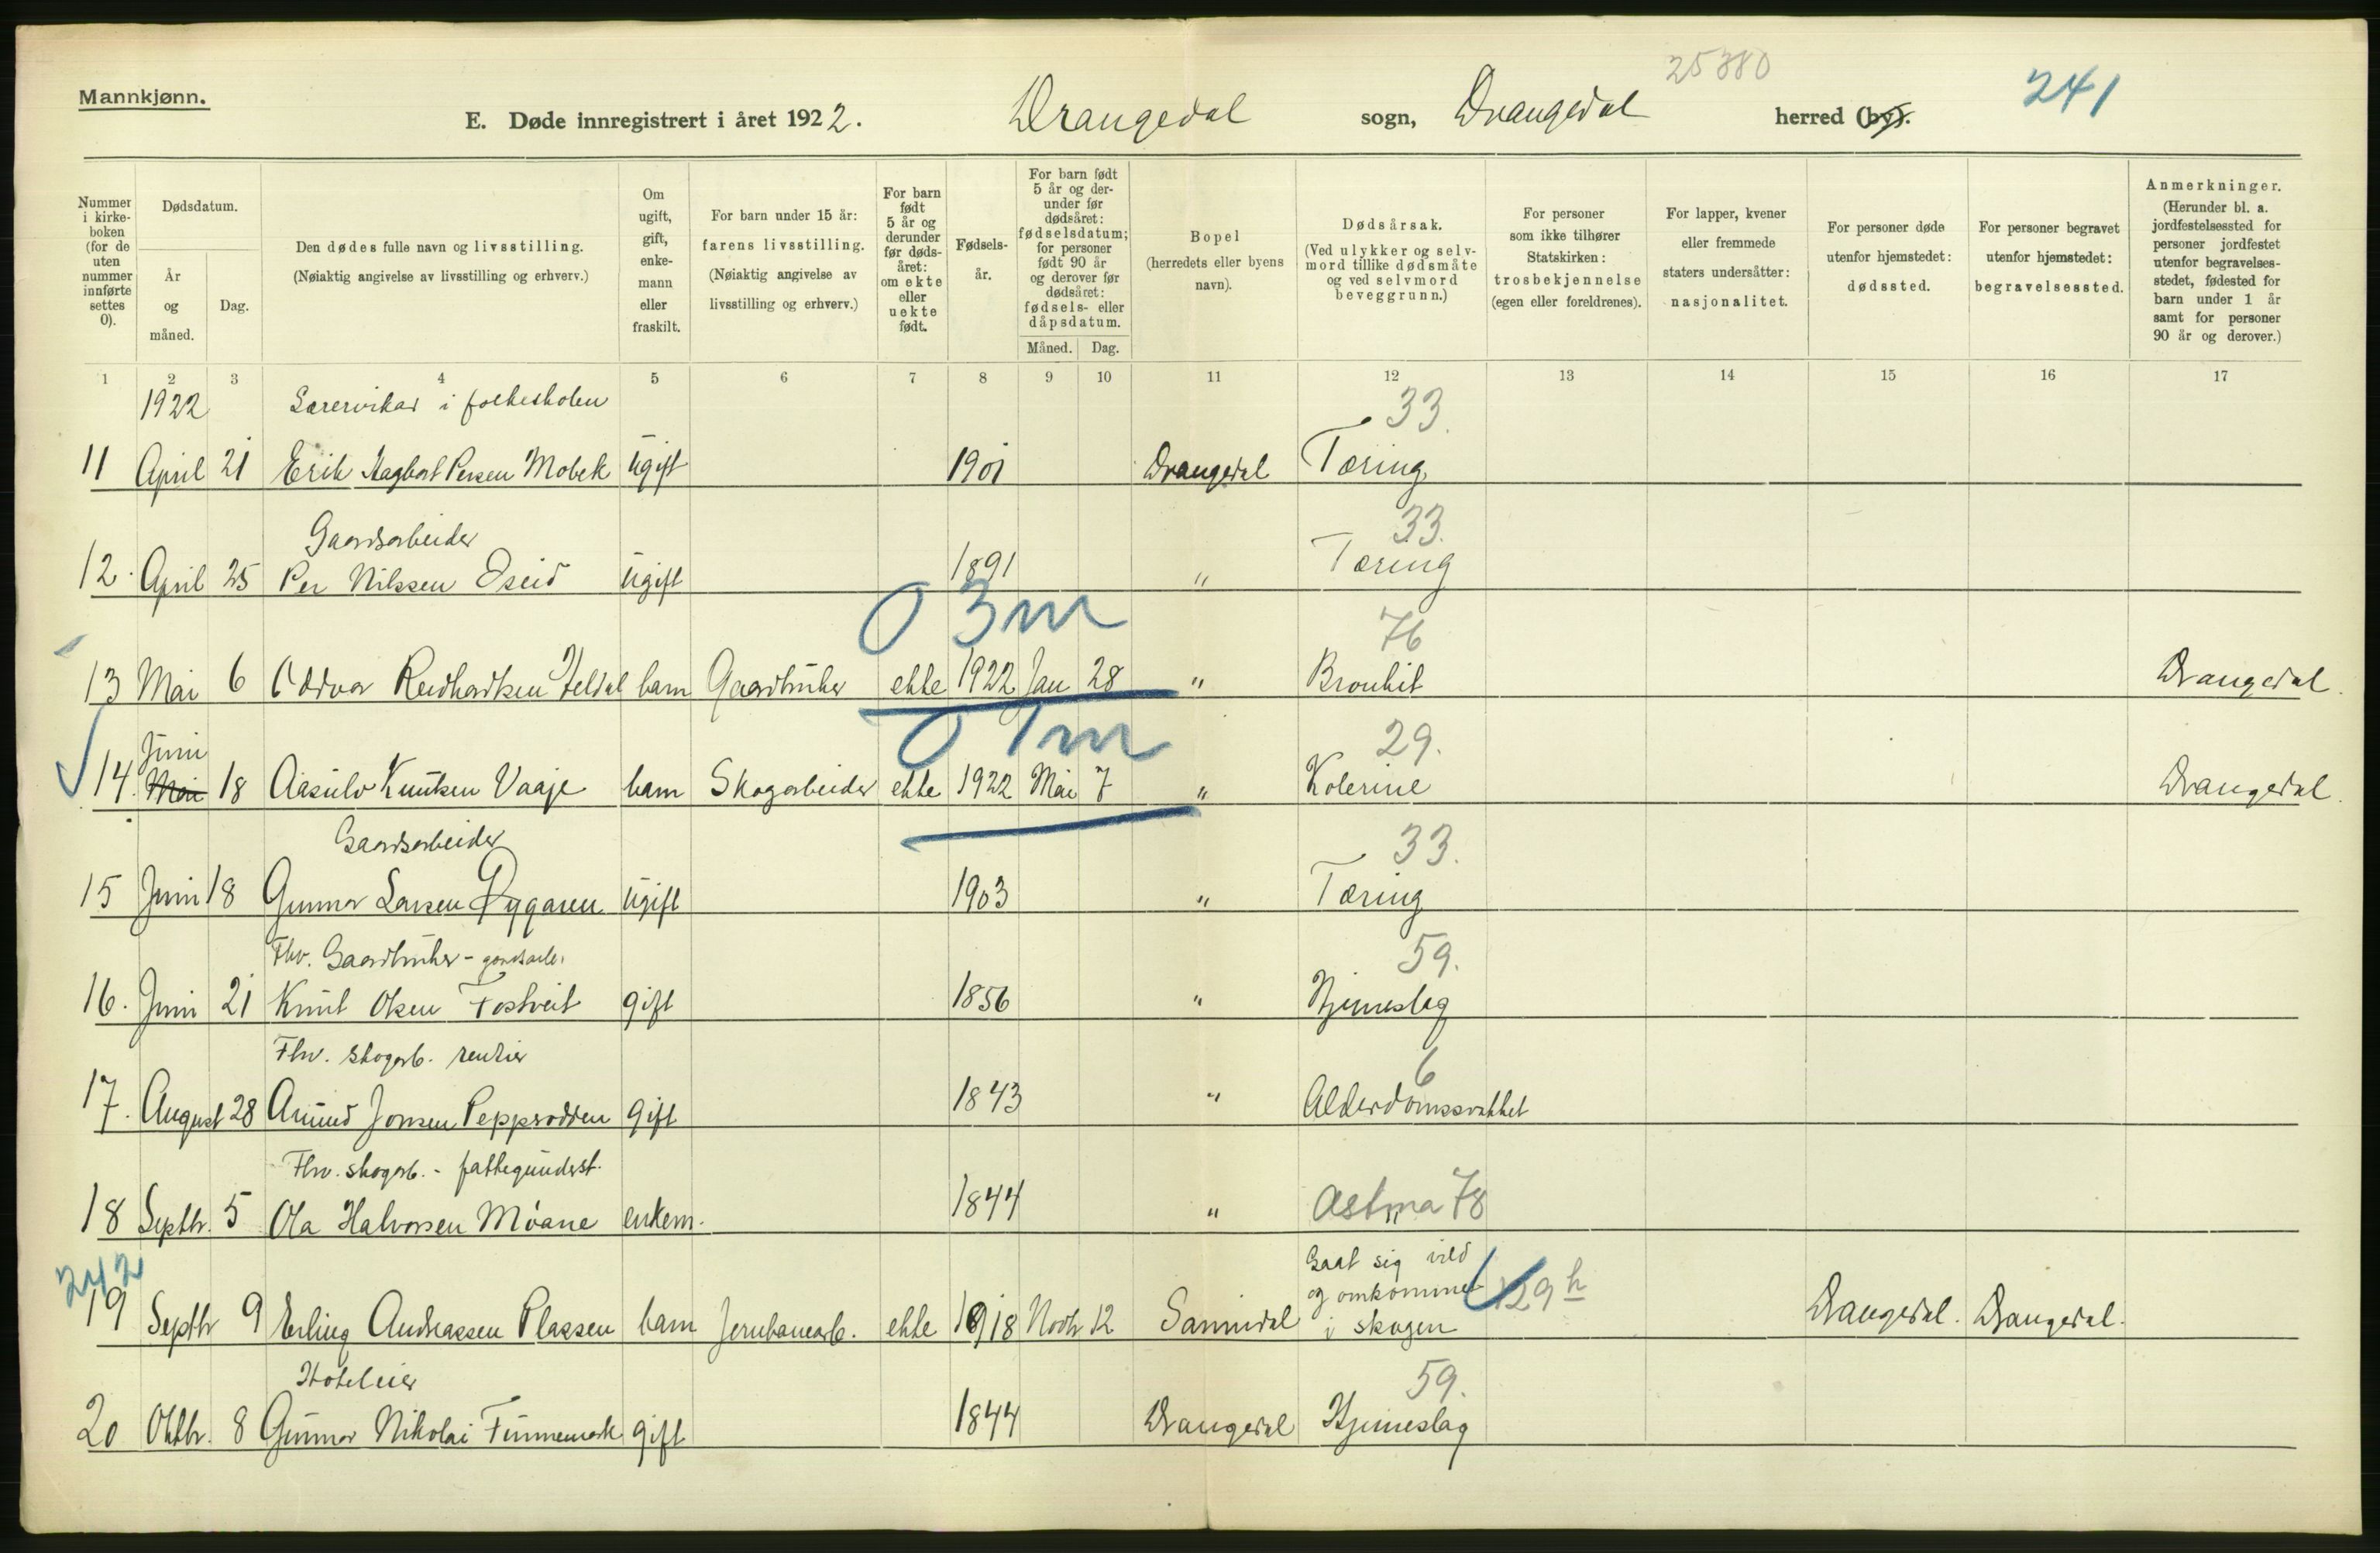 Mannkjønn.
25380
241
E. Døde innregistrert i året 1922. Drangedal sogn, Drangedal herred (by).
Nummer i kirke-boken (for de uten nummer innførte settes 0).
Dødsdatum.
År og måned.
Dag.
Den dødes fulle navn og livsstilling.
(Nøiaktig angivelse av livsstilling og erhverv.)
Om ugift, gift, enke-mann eller fraskilt.
For barn under 15 år: farens livsstilling.
(Nøiaktig angivelse av livsstilling og erhverv.)
For barn født 5 år og derunder før døds-året: om ekte eller uekte født.
Fødsels-år.
For barn født 5 år og der-under før dødsåret: fødselsdatum; for personer født 90 år og derover før dødsåret: fødsels- eller dåpsdatum.
Måned. Dag.
Bopel (herredets eller byens navn).
Dødsårsak.
(Ved ulykker og selv-mord tillike dødsmåte og ved selvmord beveggrunn.)
For personer som ikke tilhører Statskirken: trosbekjennelse (egen eller foreldrenes).
For lapper, kvener eller fremmede staters undersåtter: nasjonalitet.
For personer døde utenfor hjemstedet: dødssted.
For personer begravet utenfor hjemstedet: begravelsessted.
Anmerkninger.
(Herunder bl. a. jordfestelsessted for personer jordfestet utenfor begravelses-stedet, fødested for barn under 1 år samt for personer 90 år og derover.)
1 2 3 4 5 6 7 8 9 10 11 12 13 14 15 16 17
1922 Lærervikar i folkeskolen 33.
11 April 21 Erik Hagbart Persen Mobek Ugift 1901 Drangedal Tæring
Gaardsarbeider 33.
12. April 25 Per Nilssen Oseid Ugift 1891 " Tæring
0 3m 76
13 Mai 6 Oddvar Reidhardtsen Heldal barn Gaardbruker ekte 1922 Jan 28 " Bronkit Drangedal.
Juni 0 1m 29.
14. Mai 18 Aasulv Knutsen Vaaje barn Skogarbeider ekte 1922 Mai 7 " Kolerine Drangedal.
Gaardsarbeider 33.
15 Juni 18 Gunnar Larsen Dygaren Ugift 1903 " Tæring
Fhv. Gaardbruker - 59.
16. Juni 21 Knut Olsen Tostveit gift 1856 " Hjerneslag
Fhv. skogarb. rentier 6
17. August 28 Amund Jonsen Peppsodden gift 1843 " Alderdomssvakhet
Fhv. skogarb. - fattigunderst.
18 Septbr. 5 Ola Halvorsen Moane enkem. 1844 " Astma 78
242 Gaat sig vild
og omkommet 129 h
19 Septbr 9 Erling Andreassen Plassen barn Jernbanearb. ekte 1918 Novbr 12 Sannidal i skogen Drangedal. Drangedal.
Hoteleier 59.
20 Oktbr. 8 Gunnar Nikolai Finnemark gift 1844 Drangedal Hjerneslag